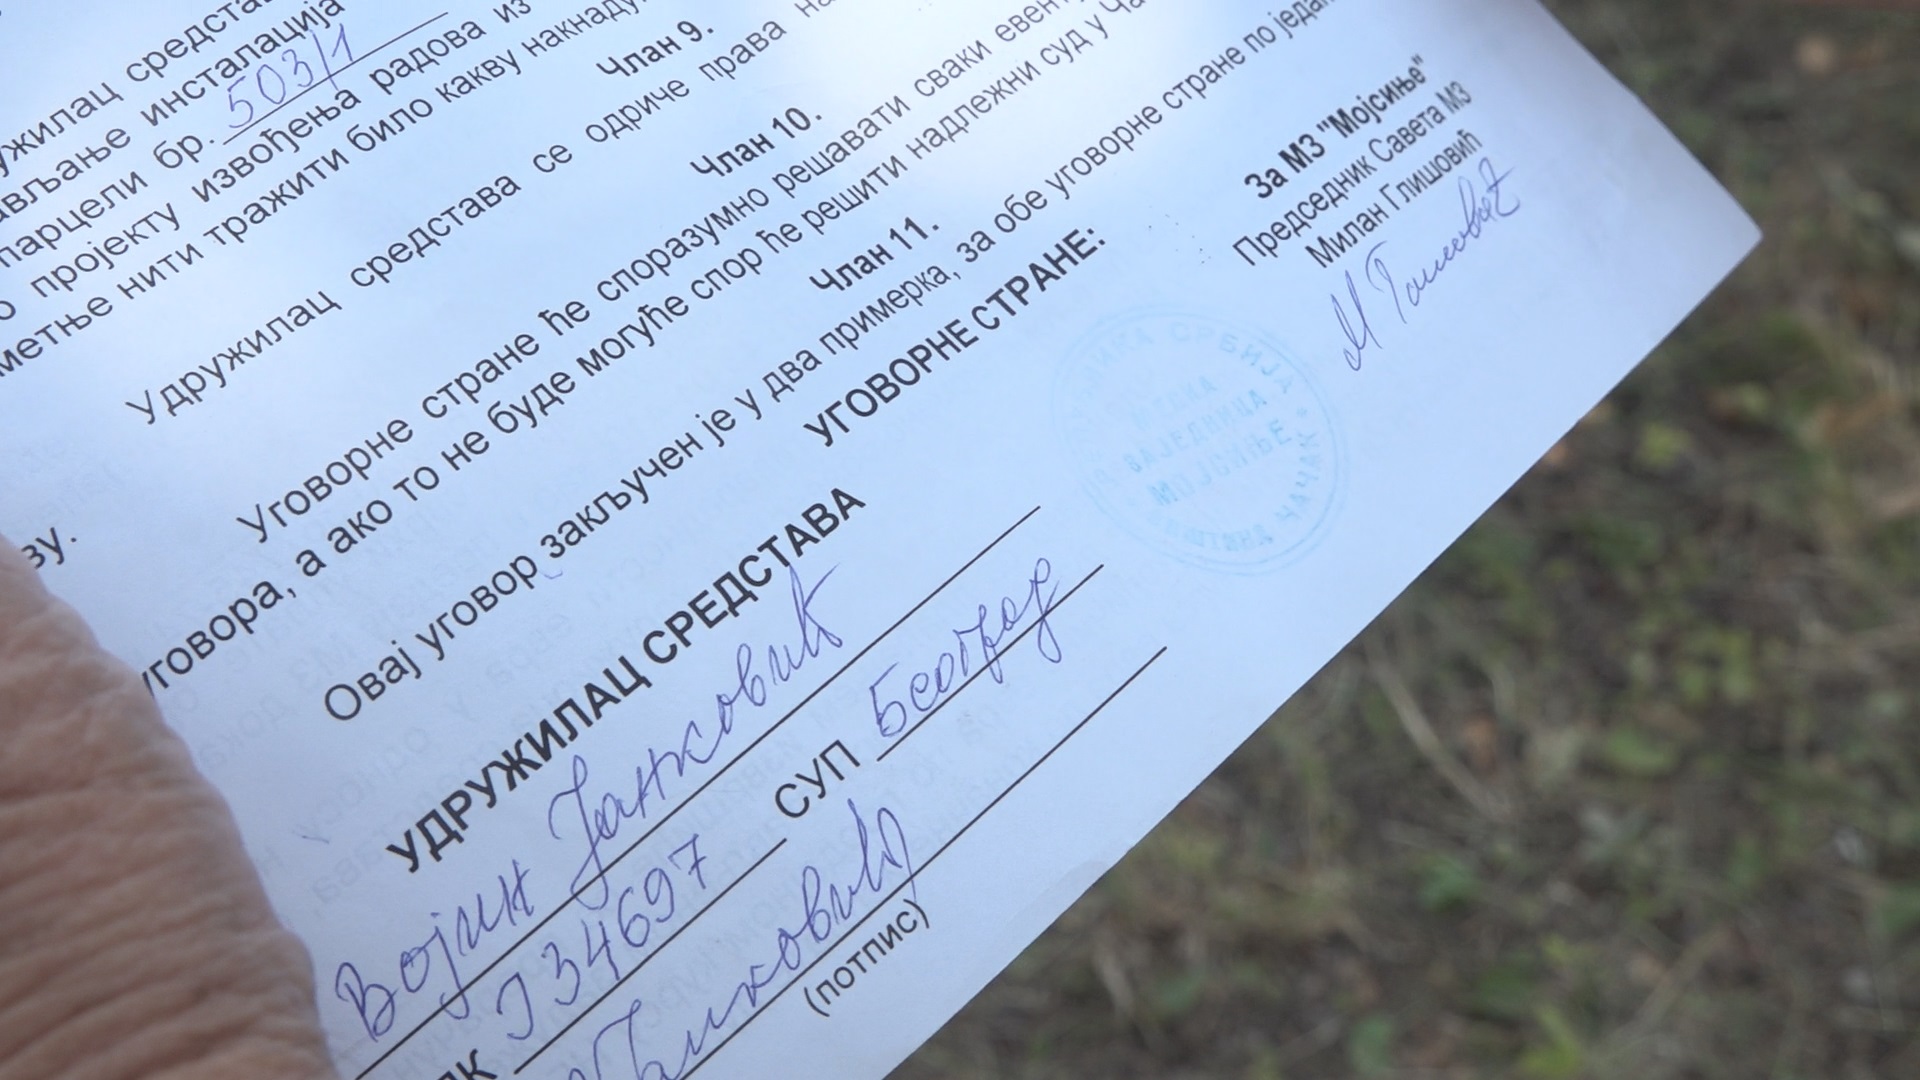 средста
инсталација
парцели бр. 503/1
пројекту извођења радова из
нити тражити било какву накнаду
Члан 9.
Удружилац средстава се одриче права на
Члан 10.
Уговорне стране ће споразумно решавати сваки евент
уговора, а ако то не буде могуће спор ће решити надлежни суд у Ча
Члан 11.
Овај уговор закључен је у два примерка, за обе уговорне стране по један
УГОВОРНЕ СТРАНЕ:
УДРУЖИЛАЦ СРЕДСТАВА
Војин Јанковић
ЛК 734697 СУП Београд
(потпис)
За МЗ "Мојсиње"
Председник Савета МЗ
Милан Глишовић
СРБИЈА
ЗАЈЕДНИЦА
МОЈСИЊЕ
ЧАЧАК